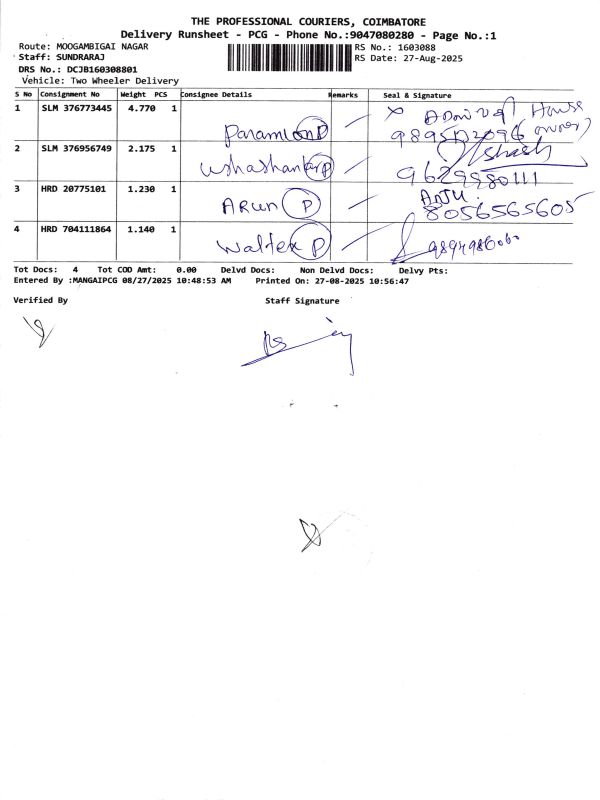 THE PROFESSIONAL COURIERS, COIMBATORE
Delivery Runsheet - PCG - Phone No.:9047080280 - Page No.:1
Route: MOOGAMBIGAI NAGAR RS No.: 1603088
Staff: SUNDRARAJ RS Date: 27-Aug-2025
DRS No.: DCJB160308801
Vehicle: Two Wheeler Delivery
S No Consignment No Weight PCS Consignee Details Remarks Seal & Signature
1 SLM 376773445 4.770 1 P House
owner)
2 SLM 376956749 2.175 1 P
9629980111
3 HRD 20775101 1.230 1 ARUN P ANJU.
8056565605
4 HRD 704111864 1.140 1 Walter P
Tot Docs: 4 Tot COD Amt: 0.00 Delvd Docs: Non Delvd Docs: Delvy Pts:
Entered By :MANGAIPCG 08/27/2025 10:48:53 AM Printed On: 27-08-2025 10:56:47
Verified By Staff Signature